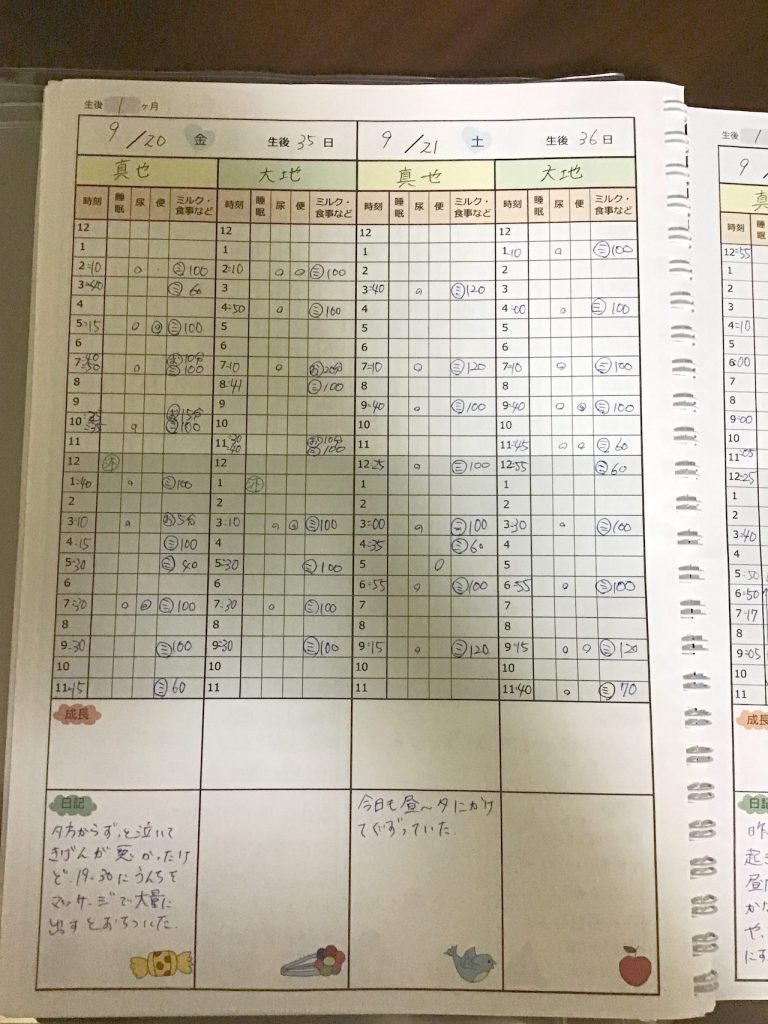 生後 1 ヶ月
9/20 金 生後 35 日 9/21 土 生後 36 日
真也 大地 真也 大地
時刻 睡眠 尿 便 ミルク・食事など 時刻 睡眠 尿 便 ミルク・食事など 時刻 睡眠 尿 便 ミルク・食事など 時刻 睡眠 尿 便 ミルク・食事など
12 12 12 12
1 1 1 1:10 ○ ミ100
2:10 ○ ミ100 2:10 ○ ○ ミ100 2 2
3:40 ミ60 3 3:40 ○ ミ120 3
4 4:50 ○ ミ100 4 4:00 ○ ミ100
5:15 ○ ◎ ミ100 5 5 5
6 6 6 6
7:40 お10分
:50 ○ ミ100 7:10 ○ お20分 7:10 ○ ミ120 7:10 ○ ミ100
8 8:41 ミ100 8 8
9 9 9:40 ○ ミ100 9:40 ○ ◎ ミ100
10:25 お15分
:35 ○ ミ100 10 10 10
11 11:30 お10分 11 11:45 ○ ○ ミ60
:40 ミ100
12 沐 12 12:25 ○ ミ100 12:55 ミ60
1:40 ○ ミ100 1 沐 1 1
2 2 2 2
3:10 ○ お5分 3:10 ○ ◎ ミ100 3:00 ○ ミ100 3:30 ○ ミ100
4:15 ミ100 4 4:35 ミ60 4
5:30 ミ40 5:30 ミ100 5 ○ 5
6 6 6:55 ○ ミ100 6:55 ○ ミ100
7:30 ○ ◎ ミ100 7:30 ○ ミ100 7 7
8 8 8 8
9:30 ミ100 9:30 ミ100 9:15 ○ ミ120 9:15 ○ ○ ミ120
10 10 10 10
11:15 ミ60 11 11 11:40 ○ ミ70
成長
日記
夕方からずっと泣いて
きげんが悪かったけ
ど、19:30にうんちを
マッサージで大量に
出すとおちついた。
今日も昼〜夕にかけ
てぐずっていた。
生後 1
9/
真
時刻 睡眠
12:55
1
2
3
4:10
5
6:00
7
8
9:00
10
11:05
12:25
1
2
3:40
4
5:50
6:50
7:17
8
9:05
10
11
成長
日記
昨
起き
昼
か
や、
にす